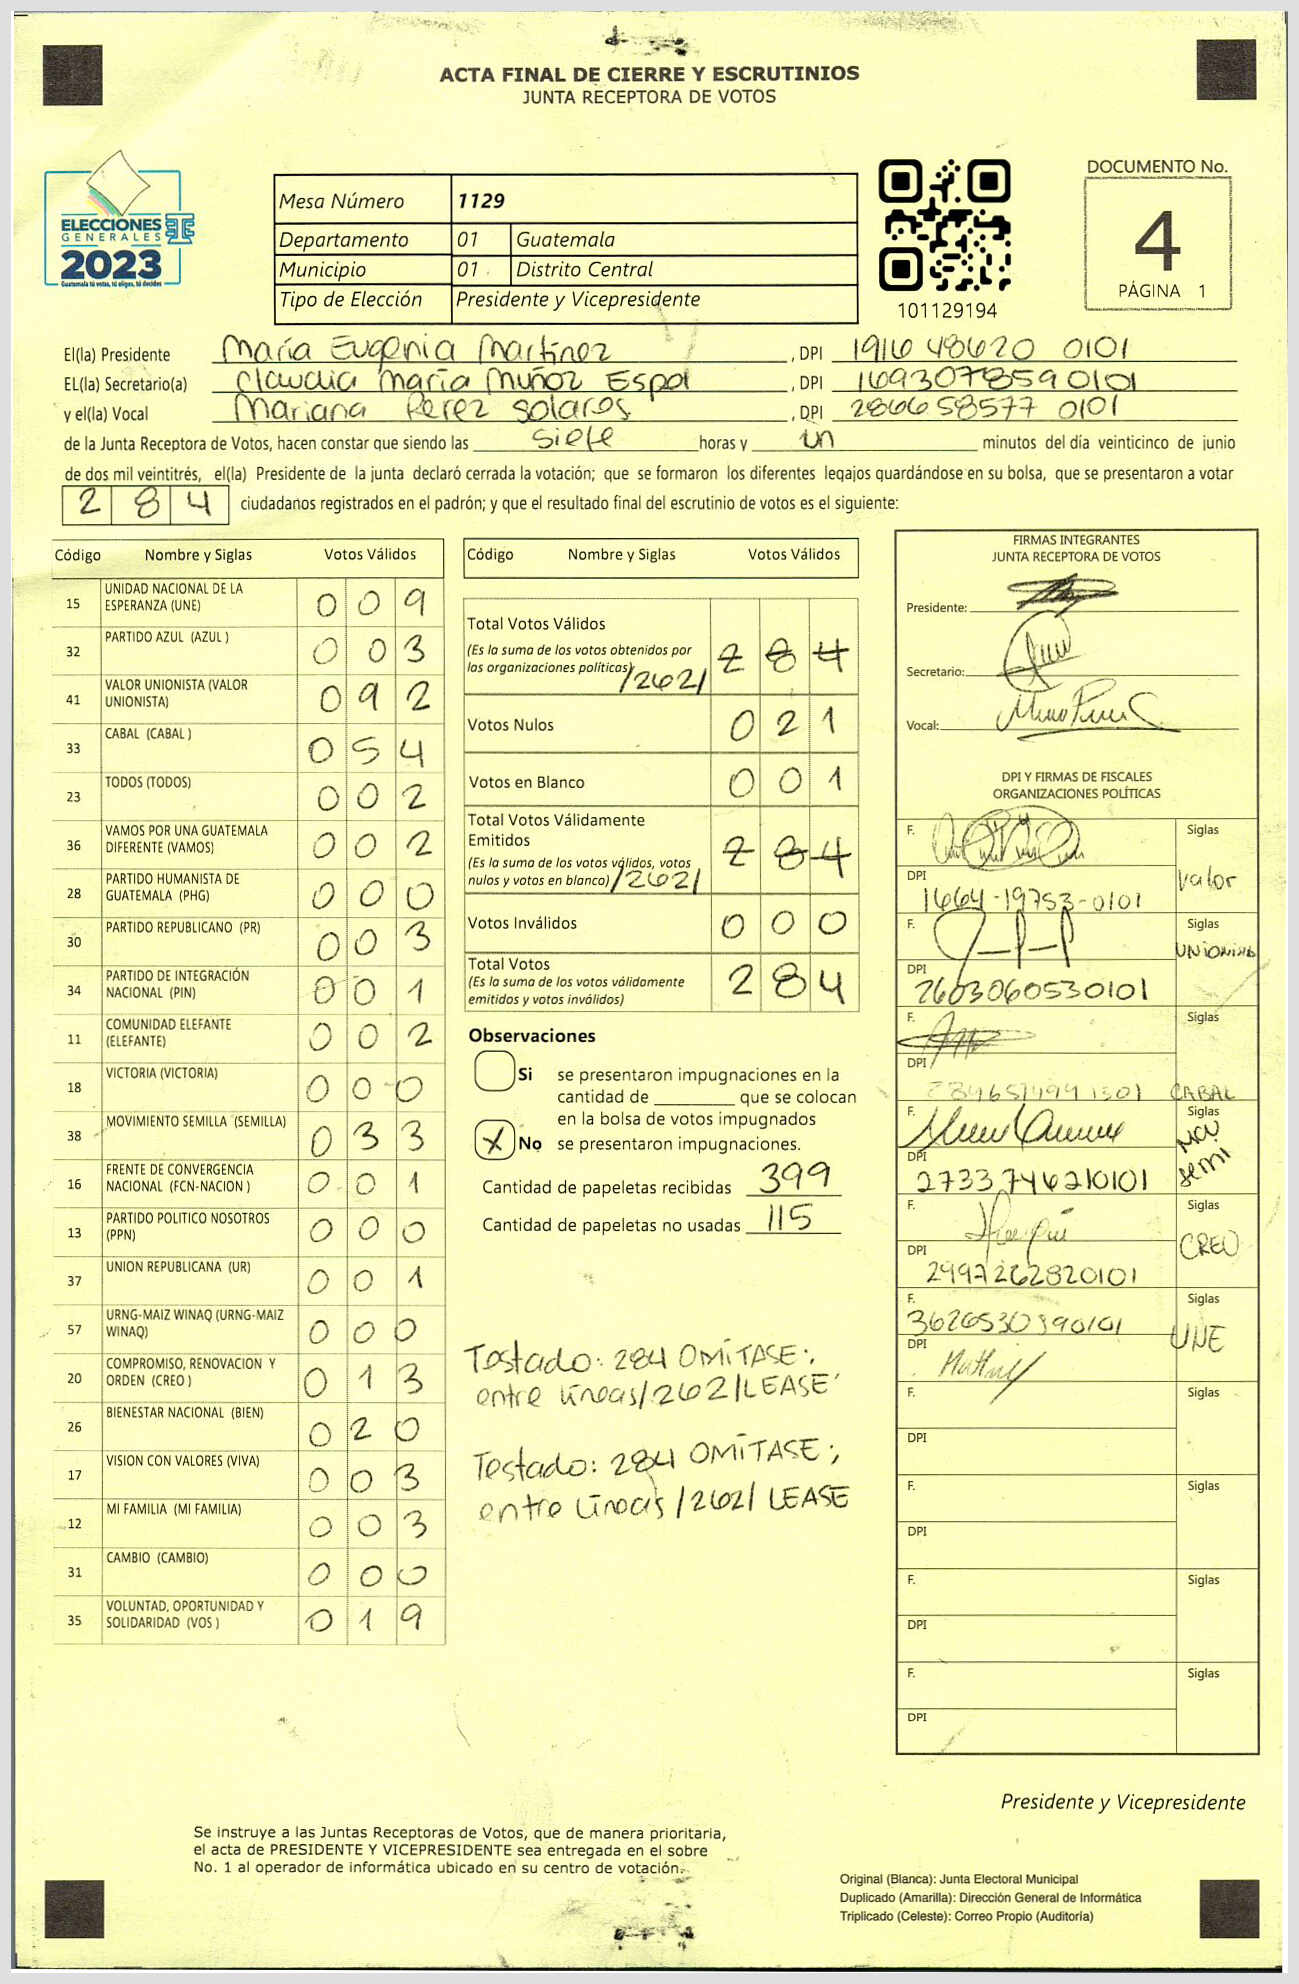 ACTA FINAL DE CIERRE Y ESCRUTINIOS
JUNTA RECEPTORA DE VOTOS
ELECCIONES
GENERALES
2023
Guatemala tú votas, tú eliges, tú decides
Mesa Número 1129
Departamento 01 Guatemala
Municipio 01 Distrito Central
Tipo de Elección Presidente y Vicepresidente
101129194
DOCUMENTO No.
4
PÁGINA 1
El(la) Presidente María Eugenia Martínez , DPI 1916 48620 0101
EL(la) Secretario(a) Claudia María Muñoz Espol , DPI 1693078590101
y el(la) Vocal Mariana Pérez Solares , DPI 2866 58577 0101
de la Junta Receptora de Votos, hacen constar que siendo las siete horas y un minutos del día veinticinco de junio
de dos mil veintitrés, el(la) Presidente de la junta declaró cerrada la votación; que se formaron los diferentes legajos guardándose en su bolsa, que se presentaron a votar
2 8 4 ciudadanos registrados en el padrón; y que el resultado final del escrutinio de votos es el siguiente:
Código Nombre y Siglas Votos Válidos
15 UNIDAD NACIONAL DE LA ESPERANZA (UNE) 0 0 9
32 PARTIDO AZUL (AZUL ) 0 0 3
41 VALOR UNIONISTA (VALOR UNIONISTA) 0 9 2
33 CABAL (CABAL ) 0 5 4
23 TODOS (TODOS) 0 0 2
36 VAMOS POR UNA GUATEMALA DIFERENTE (VAMOS) 0 0 2
28 PARTIDO HUMANISTA DE GUATEMALA (PHG) 0 0 0
30 PARTIDO REPUBLICANO (PR) 0 0 3
34 PARTIDO DE INTEGRACIÓN NACIONAL (PIN) 0 0 1
11 COMUNIDAD ELEFANTE (ELEFANTE) 0 0 2
18 VICTORIA (VICTORIA) 0 0 0
38 MOVIMIENTO SEMILLA (SEMILLA) 0 3 3
16 FRENTE DE CONVERGENCIA NACIONAL (FCN-NACION ) 0 0 1
13 PARTIDO POLITICO NOSOTROS (PPN) 0 0 0
37 UNION REPUBLICANA (UR) 0 0 1
57 URNG-MAIZ WINAQ (URNG-MAIZ WINAQ) 0 0 0
20 COMPROMISO, RENOVACION Y ORDEN (CREO ) 0 1 3
26 BIENESTAR NACIONAL (BIEN) 0 2 0
17 VISION CON VALORES (VIVA) 0 0 3
12 MI FAMILIA (MI FAMILIA) 0 0 3
31 CAMBIO (CAMBIO) 0 0 0
35 VOLUNTAD, OPORTUNIDAD Y SOLIDARIDAD (VOS ) 0 1 9
Código Nombre y Siglas Votos Válidos
Total Votos Válidos 2 8 4
(Es la suma de los votos obtenidos por
las organizaciones políticas) /262/
Votos Nulos 0 2 1
Votos en Blanco 0 0 1
Total Votos Válidamente
Emitidos 2 8 4
(Es la suma de los votos válidos, votos
nulos y votos en blanco) /262/
Votos Inválidos 0 0 0
Total Votos 2 8 4
(Es la suma de los votos válidamente
emitidos y votos inválidos)
Observaciones
Si se presentaron impugnaciones en la
cantidad de ________ que se colocan
en la bolsa de votos impugnados
X No se presentaron impugnaciones.
Cantidad de papeletas recibidas 399
Cantidad de papeletas no usadas 115
Testado: 284 OMÍTASE;
entre líneas/262/LEASE
Testado: 284 OMÍTASE;
entre líneas /262/ LEASE
FIRMAS INTEGRANTES
JUNTA RECEPTORA DE VOTOS
Presidente:
Secretario:
Vocal:
DPI Y FIRMAS DE FISCALES
ORGANIZACIONES POLÍTICAS
F. Siglas
DPI Valor
1664-19753-0101
F. Siglas
Unionista
DPI
2603060530101
F. Siglas
DPI
CABAL
F. Siglas
Mov.
Semi
DPI
2733746210101
F. Siglas
CREO
DPI
2997262820101
F. Siglas
UNE
DPI
F. Siglas
DPI
F. Siglas
DPI
F. Siglas
DPI
F. Siglas
DPI
Presidente y Vicepresidente
Se instruye a las Juntas Receptoras de Votos, que de manera prioritaria,
el acta de PRESIDENTE Y VICEPRESIDENTE sea entregada en el sobre
No. 1 al operador de informática ubicado en su centro de votación.
Original (Blanca): Junta Electoral Municipal
Duplicado (Amarilla): Dirección General de Informática
Triplicado (Celeste): Correo Propio (Auditoría)